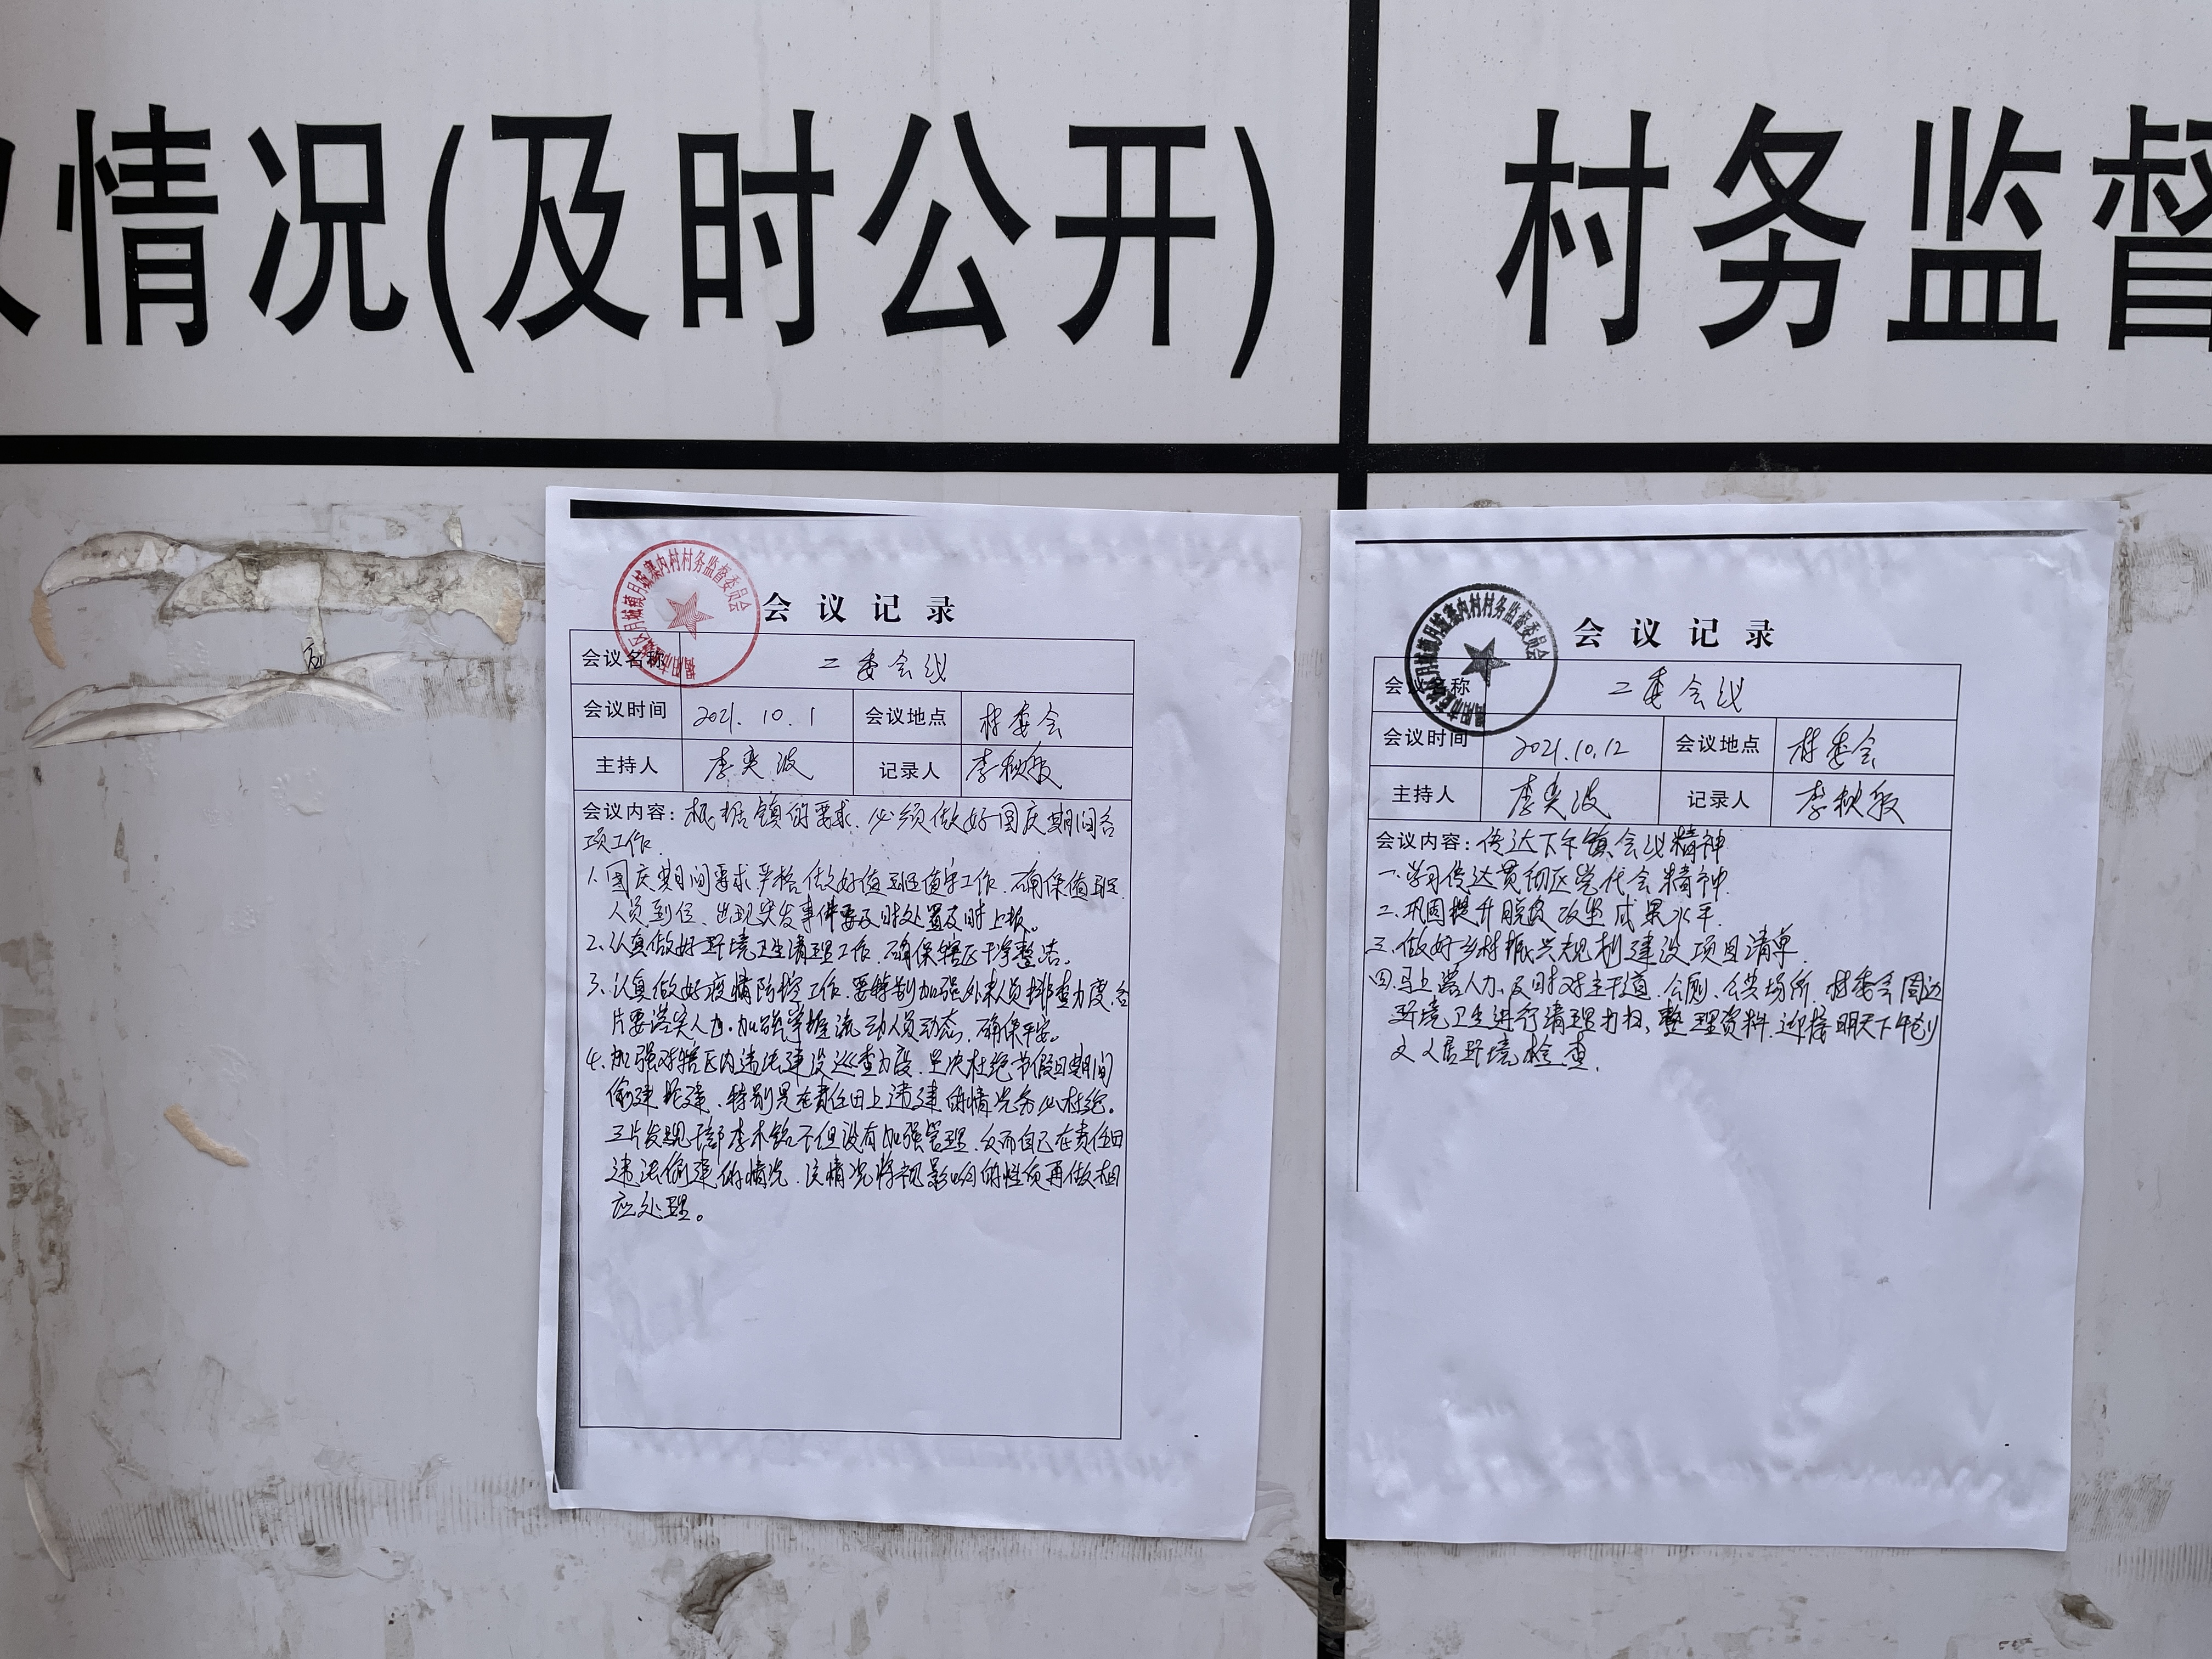 情况(及时公开)
村务监督
月城镇月城寨内村村务监督委员会
会议记录
会议名称 二委会议
会议时间 2021.10.1 会议地点 村委会
主持人 李奕波 记录人 李秋
会议内容:根据镇的要求.必须做好国庆期间各
项工作.
1.国庆期间要求严格做好值班值守工作.确保值班
人员到位、出现突发事件要及时处置及时上报。
2.认真做好环境卫生清理工作.确保辖区干净整洁。
3.认真做好疫情防控工作.要特别加强外来人员排查力度.各
片要落实人力.加强掌握流动人员动态.确保平安。
4.加强对辖区内违法建设巡查力度.坚决杜绝节假日期间
偷建抢建、特别是在责任田上违建的情况务必杜绝。
三片发现干部李木铭不但没有加强管理.反而自己在责任田
违法偷建的情况.该情况将视影响的性质再做相
应处理。
月城镇月城寨内村村务监督委员会
会议记录
会议名称 二委会议
会议时间 2021.10.12 会议地点 村委会
主持人 李奕波 记录人 李秋
会议内容:传达下午镇会议精神
一.学习传达贯彻区党代会精神.
二.巩固提升脱贫攻坚成果水平.
三.做好乡村振兴规划建设项目清单.
四.马上落人力、及时对主干道、公厕、公共场所、村委会周边
环境卫生进行清理打扫、整理资料.迎接明天下午创
文人居环境检查.